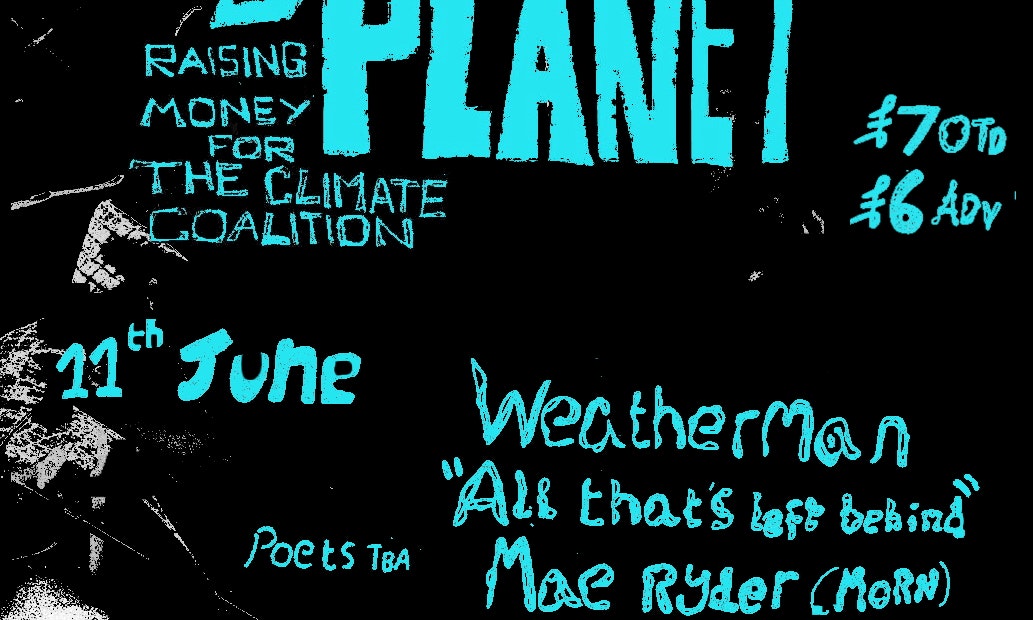 PLANET
RAISING
MONEY
FOR
THE CLIMATE
COALITION
£7 OTD
£6 ADV
11th June
Weatherman
"All that's left behind"
Mae Ryder (MORN)
Poets TBA